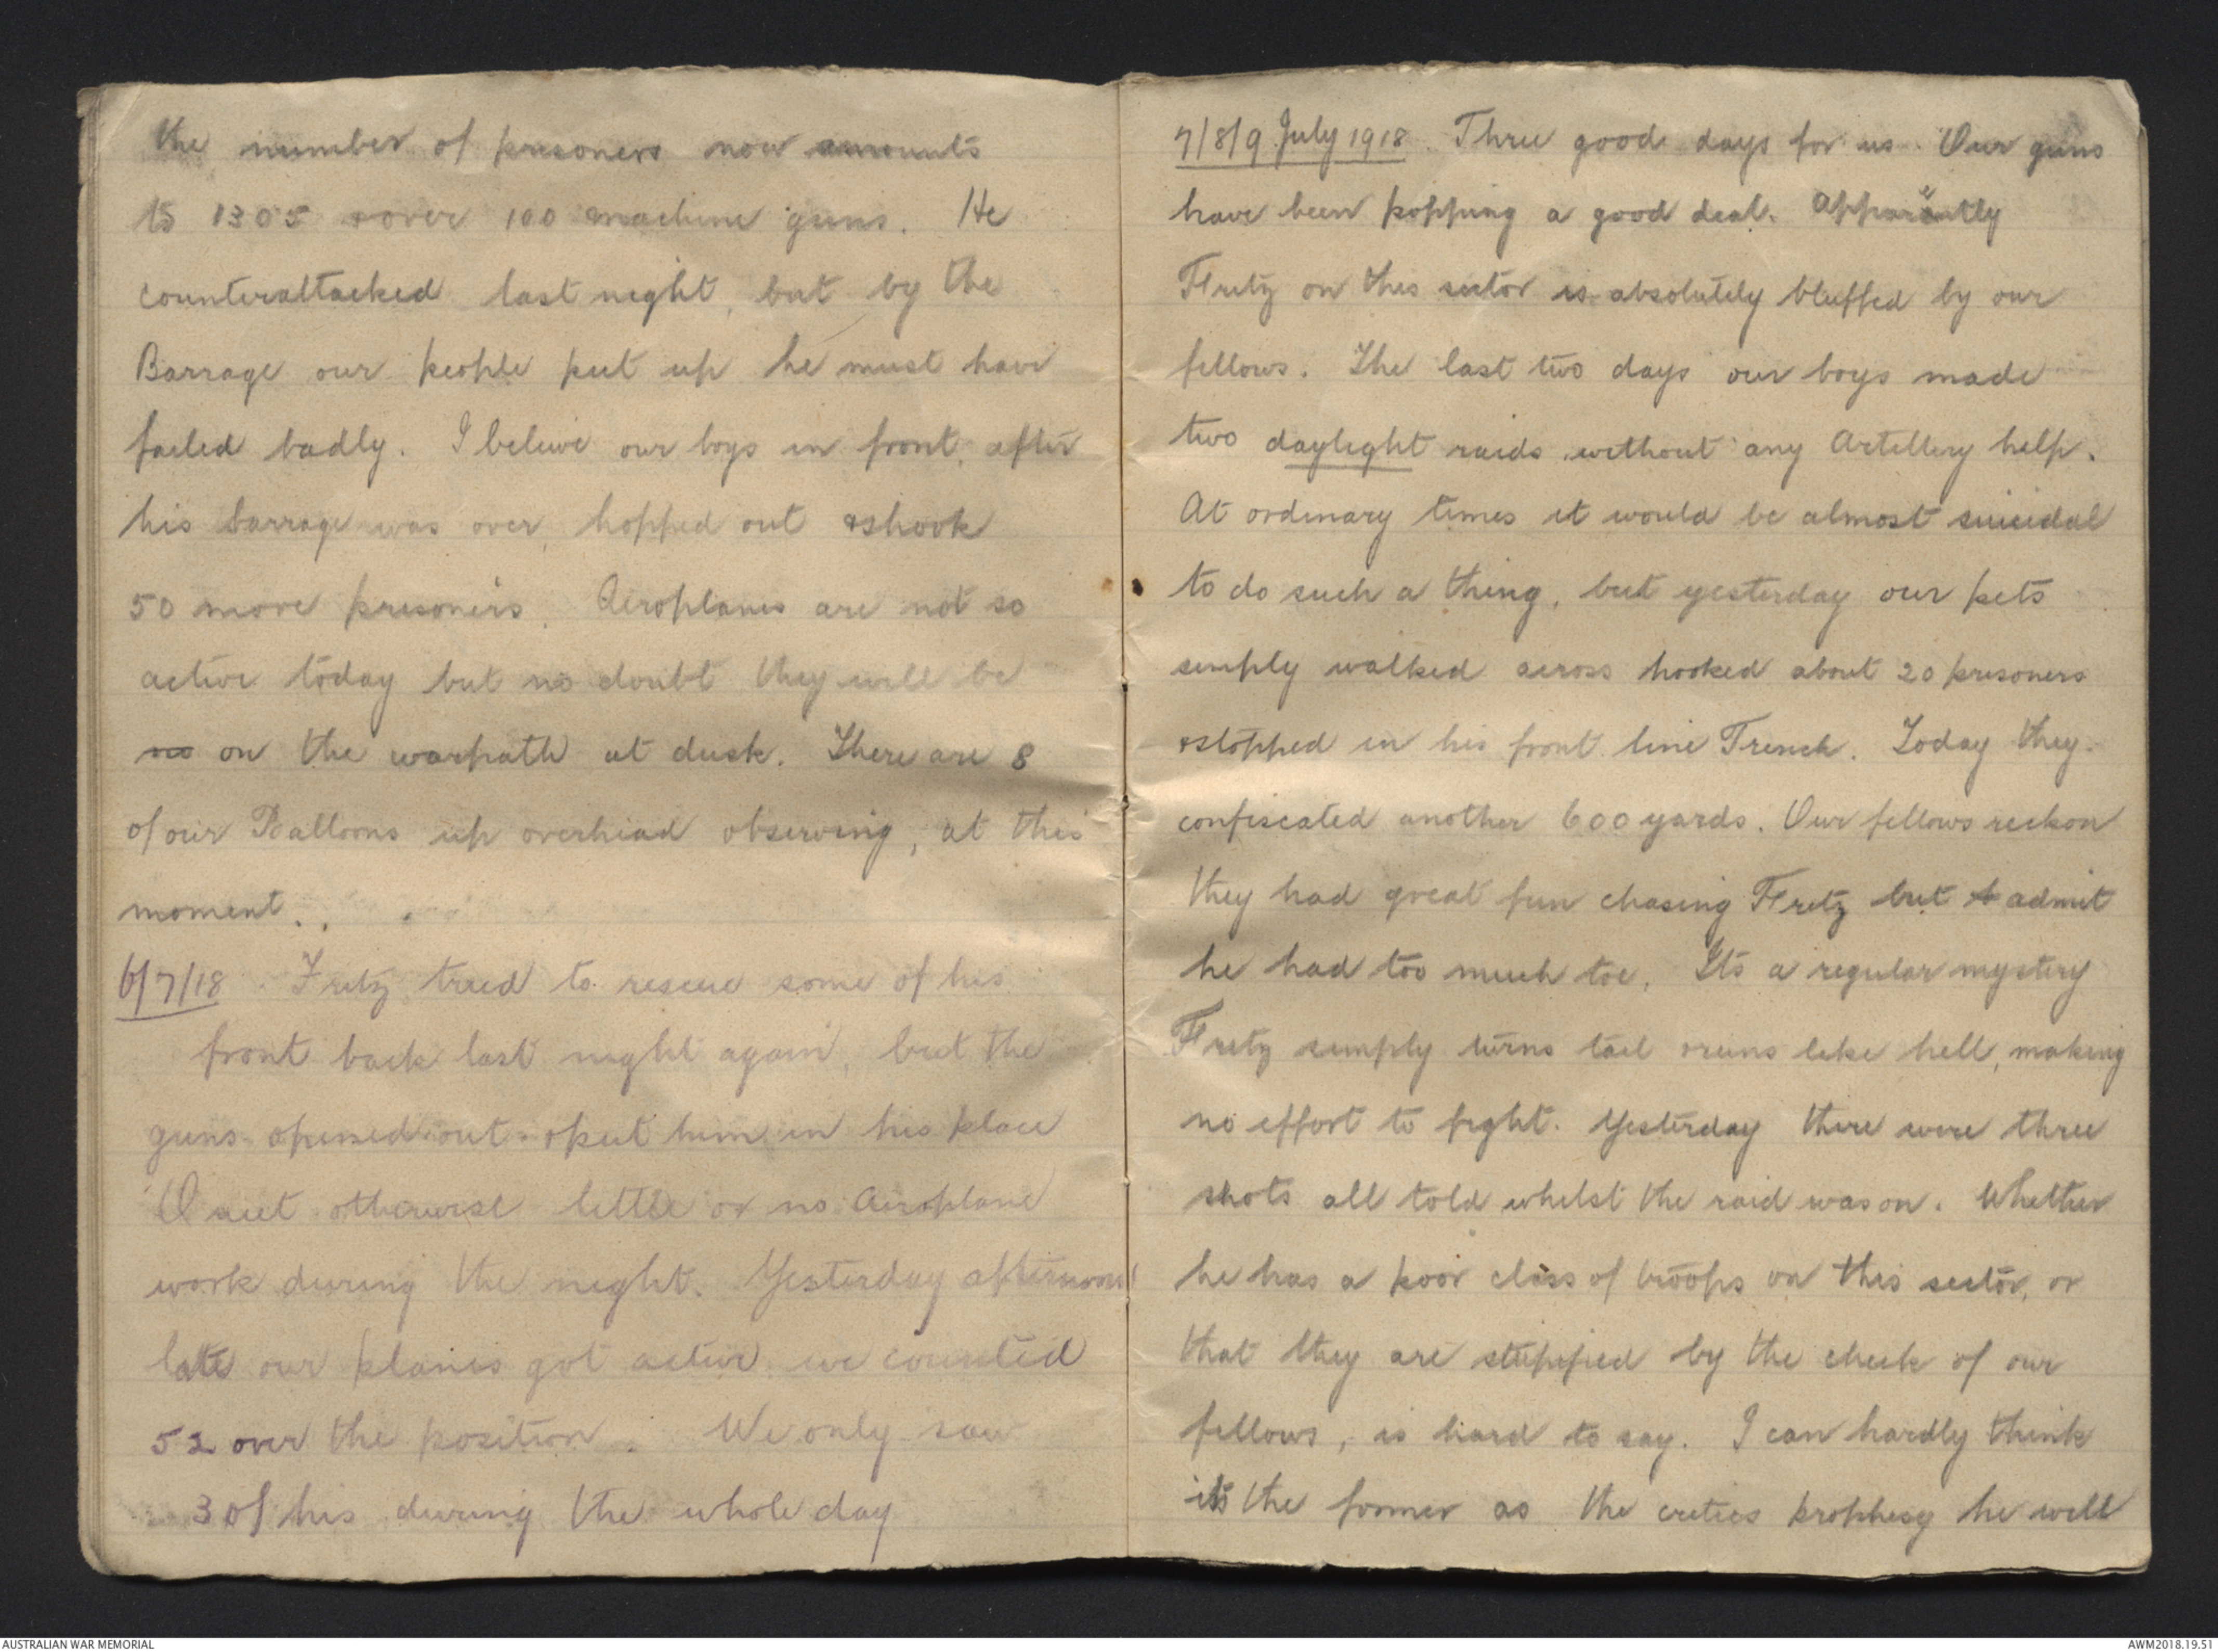 the number of prisoners now amounts
to 1305 & over 100 machine guns. He
counterattacked last night, but by the
Barrage our people put up he must have
failed badly. I believe our boys in front, after
his barrage was over, hopped out & shook
50 more prisoners. Aeroplanes are not so
active today but no doubt they will be
no on the warpath at dusk. There are 8
of our Balloons up overhead observing, at this
moment.
6/7/18. Fritz tried to rescue some of his
front back last night again, but the
guns opened out & put him in his place
Quiet otherwise little or no Aeroplane
work during the night. Yesterday afternoon
late our planes got active we counted
52 over the position. We only saw
3 of his during the whole day
7/8/9 July 1918. Three good days for us. Our guns
have been popping a good deal. Apparently
Fritz on this sector is absolutely bluffed by our
fellows. The last two days our boys made
two daylight raids without any Artillery help.
At ordinary times it would be almost suicidal
to do such a thing, but yesterday our pets
simply walked across hooked about 20 prisoners
& stopped in his front line Trench. Today they
confiscated another 600 yards. Our fellows reckon
they had great fun chasing Fritz but admit
he had too much toe. Its a regular mystery
Fritz simply turns tail & runs like hell, making
no effort to fight. Yesterday there were three
shots all told whilst the raid was on. Whether
he has a poor class of troops on this sector, or
that they are stupified by the cheek of our
fellows, is hard to say. I can hardly think
its the former as the critics prophesy he will
AUSTRALIAN WAR MEMORIAL
AWM2018.19.51